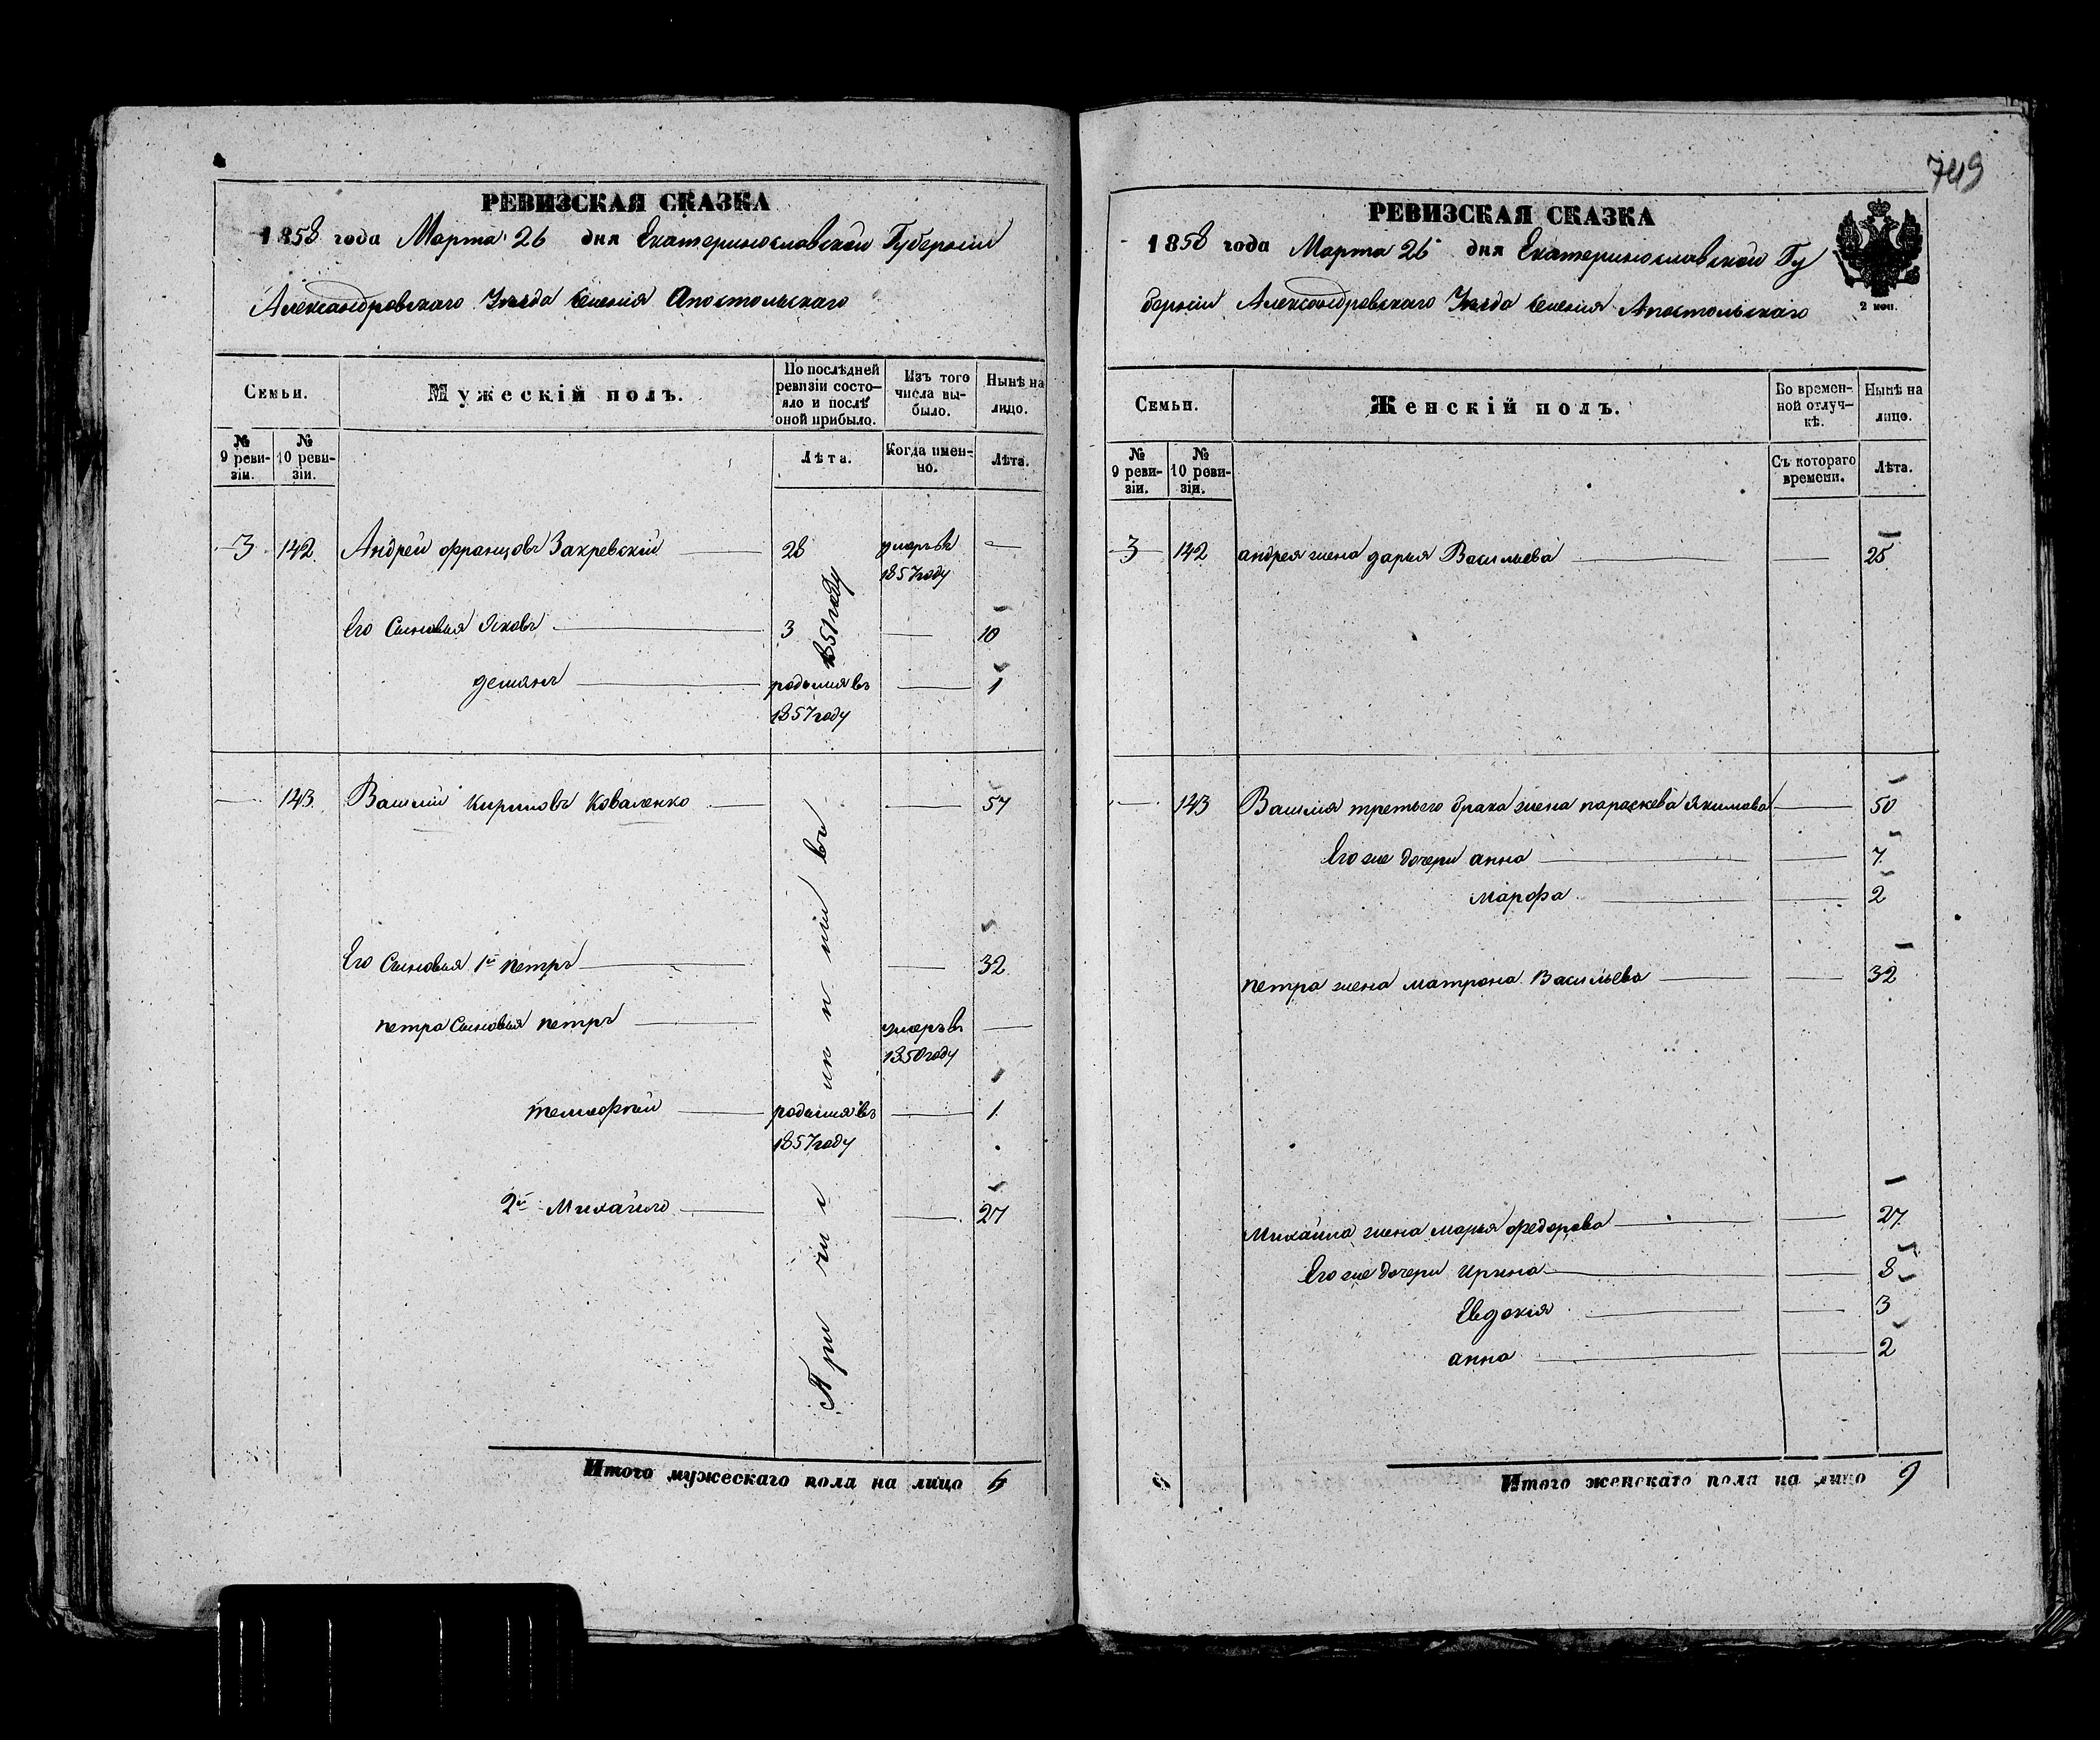 РЕВИЗСКАЯ СКАЗКА
1858 года Марта 26 дня Екатеринославской Губернии
Александровского Уезда Селения Апостольскаго
Семьи.
Мужескій полъ.
По послѣдней ревизіи состояло и послѣ оной прибыло.
Изъ того числа выбыло.
Нынѣ на лицо.
№ 9 ревизіи.
№ 10 ревизіи.
Лѣта.
Когда именно.
Лѣта.
3 142 Андрей францовъ Закревскій 28 умеръ въ 1857 году —
Его Сыновья Яковъ 3 — 10
демянъ родился въ 1857 году — 1
— 143. Василій Кириловъ Коваленко — 57
Его Сыновья 1й петръ — 32
петра Сыновья петръ умеръ въ 1850 году —
тимофей родился въ 1857 году — 1
2й Михайло — 27
1851 году
Итого мужескаго пола на лицо 6
749
РЕВИЗСКАЯ СКАЗКА
1858 года Марта 26 дня Екатеринославской Гу
берніи Александровскаго Уезда Селения Апостольскаго
2 коп.
Семьи.
Женскій полъ.
Во временной отлучкѣ.
Нынѣ на лицо.
№ 9 ревизіи.
№ 10 ревизіи.
Съ котораго времени.
Лѣта.
3 142 андрея жена дарья Васильева — 25
— 143 Василия третьего брака жена параскева Якимова — 50
Его же дочери анна — 7
марфа — 2
петра жена матрона Васильева — 32
Михайла жена марья федорова — 27
Его же дочери Ирина — 8
Евдокия — 3
анна — 2
Итого женскаго пола на лицо 9